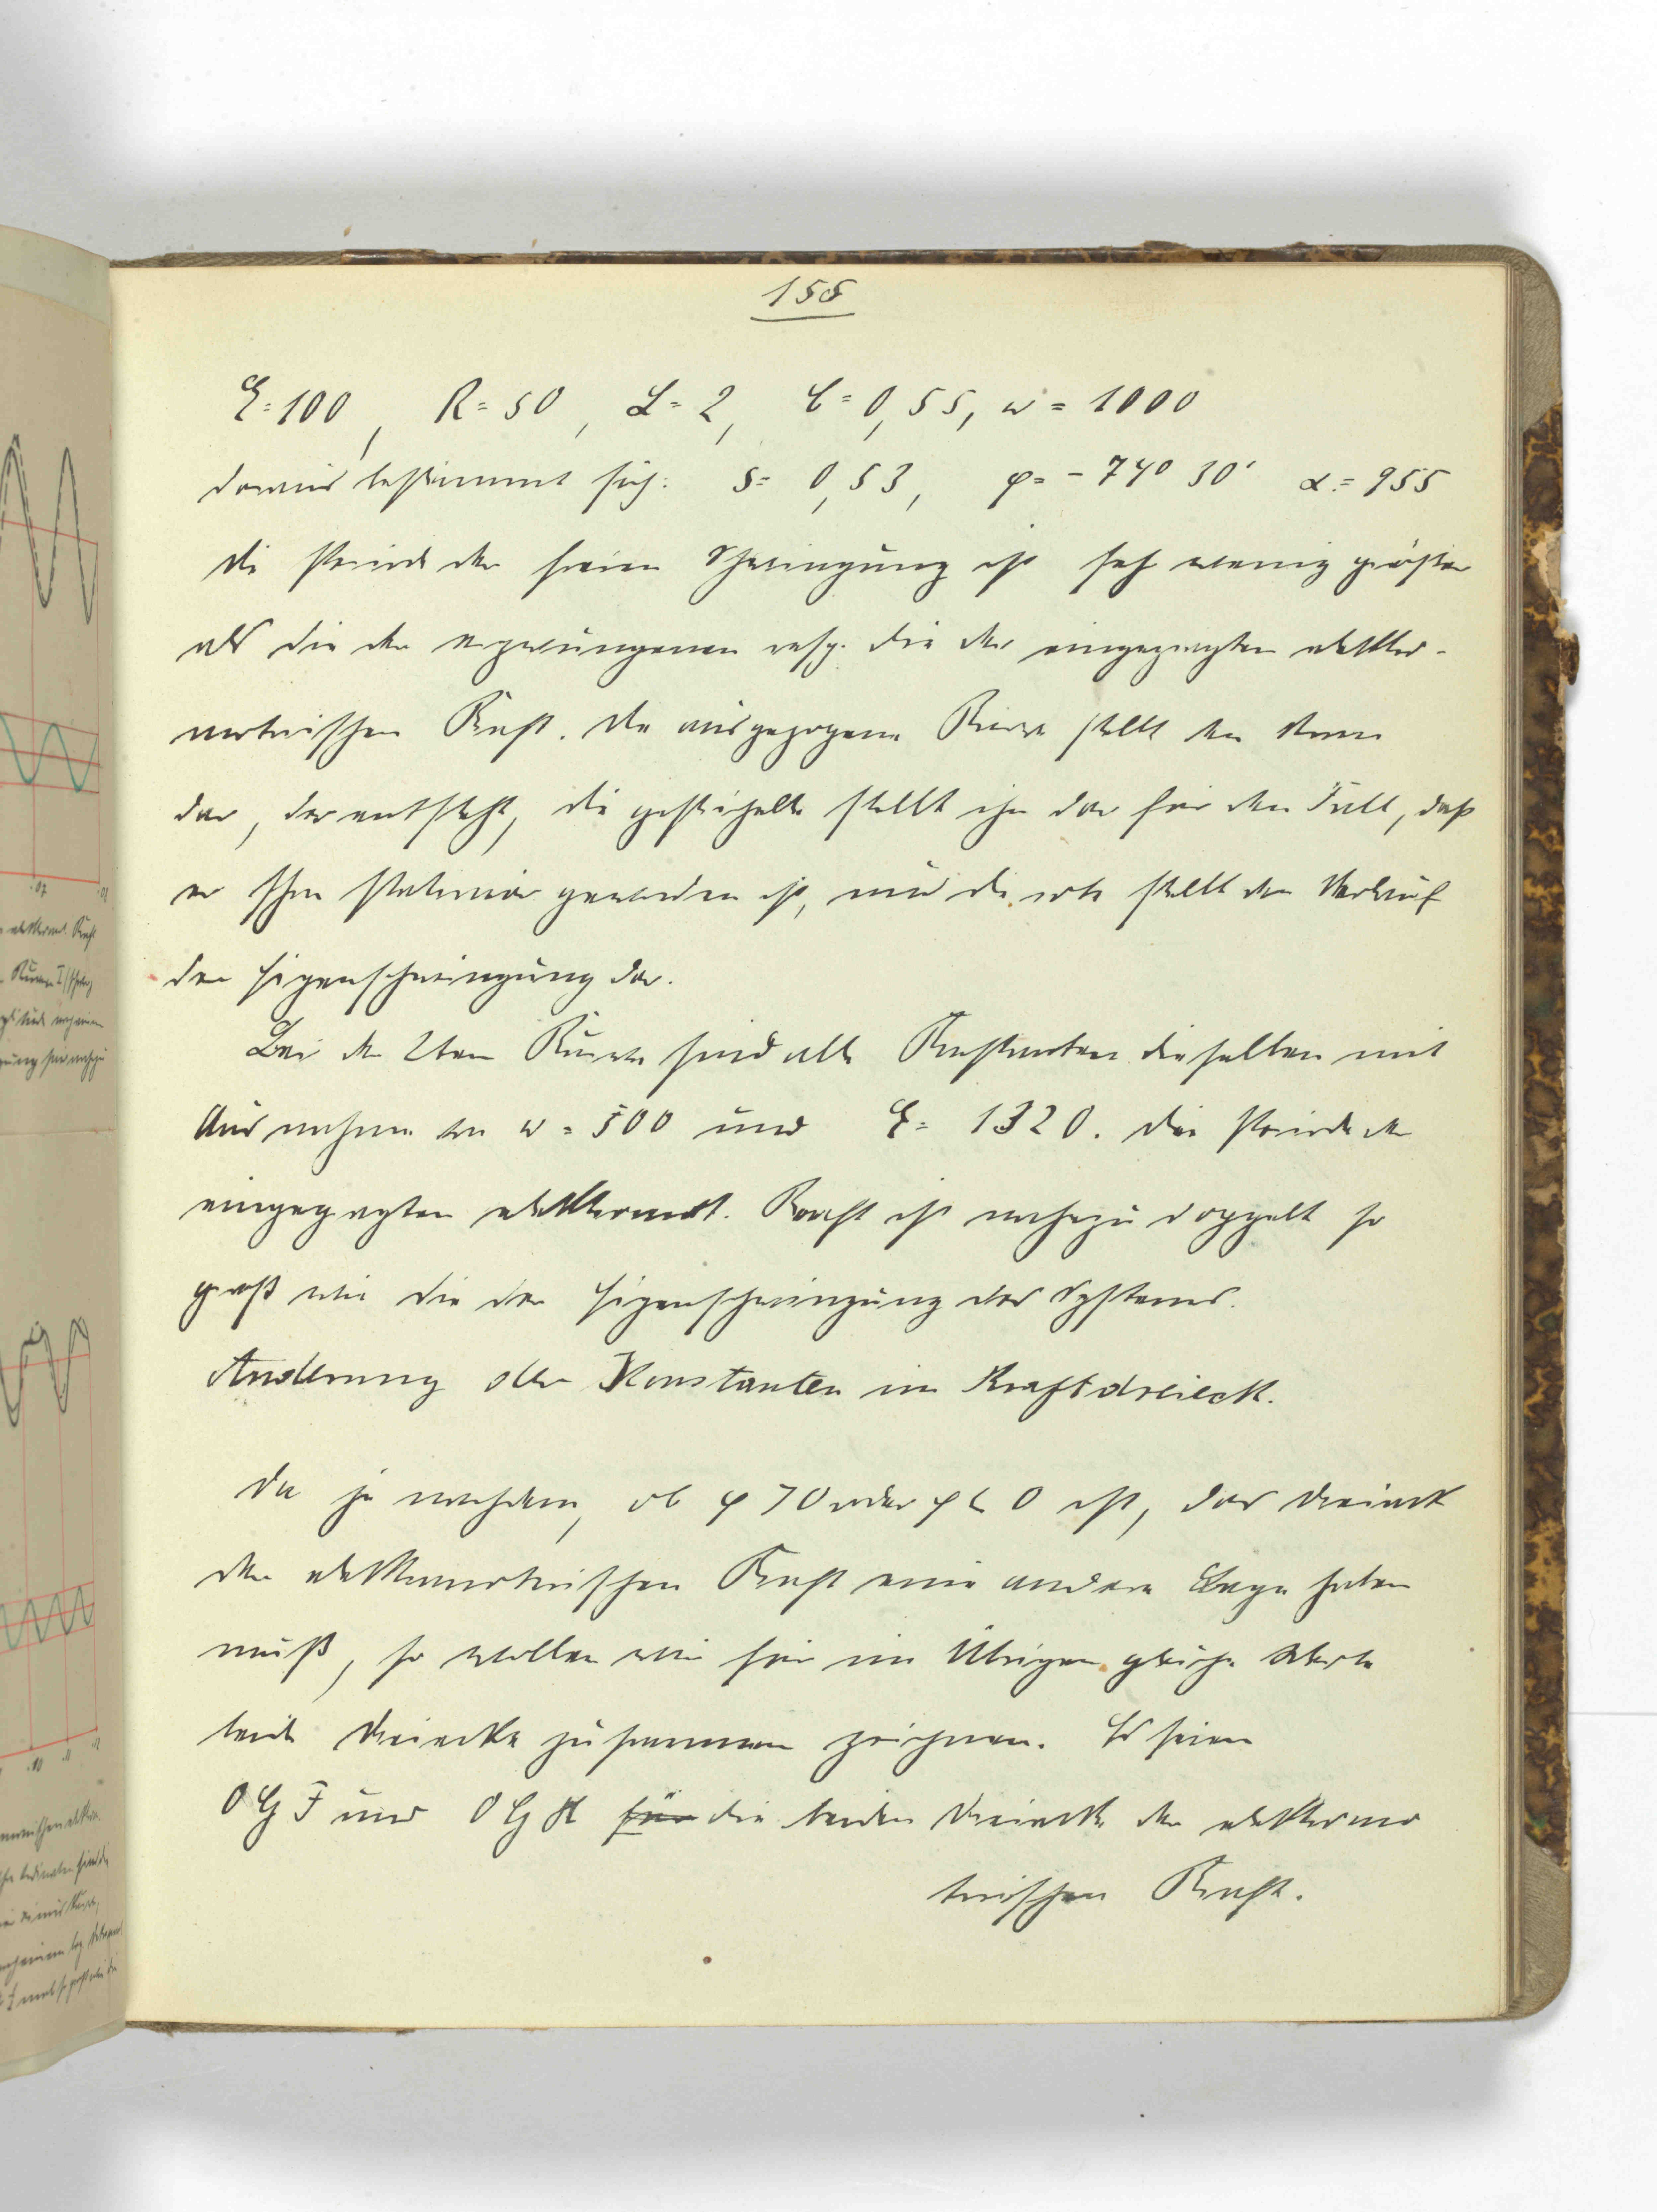 155
E = 100, R = 50, L = 2, C = 0,55, w = 1000
daraus bestimmt sich: S = 0,53, φ = - 74° 30' α = 955
die Periode der freien Schwingung ist sehr wenig größer
als die der erzwungenen resp. die der eingeprägten elektro-
motorischen Kraft. Die ausgezogene Kurve stellt den Strom
dar, der entsteht, die gestrichelte stellt ihn dar für den Fall, daß
er schon stationär geworden ist, und die rote stellt den Verlauf
der Eigenschwingung dar.
Bei der 2ten Kurve sind alle Konstanten dieselben mit
Ausnahme von w = 500 und E = 1320. Die Periode der
eingeprägten elektromot. Kraft ist nahezu doppelt so
groß wie die der Eigenschwingung des Systems.
Änderung der Konstanten im Kraftdreieck.
Da je nachdem, ob φ > 0 oder φ < 0 ist, das Dreieck
der elektromotorischen Kraft eine andere Lage haben
muß, so wollen wir für im Übrigen gleiche Werte
beide Dreiecke zusammen zeichnen. Es seien
O G F und O G H für die beiden Dreiecke der elektromo
torischen Kraft.